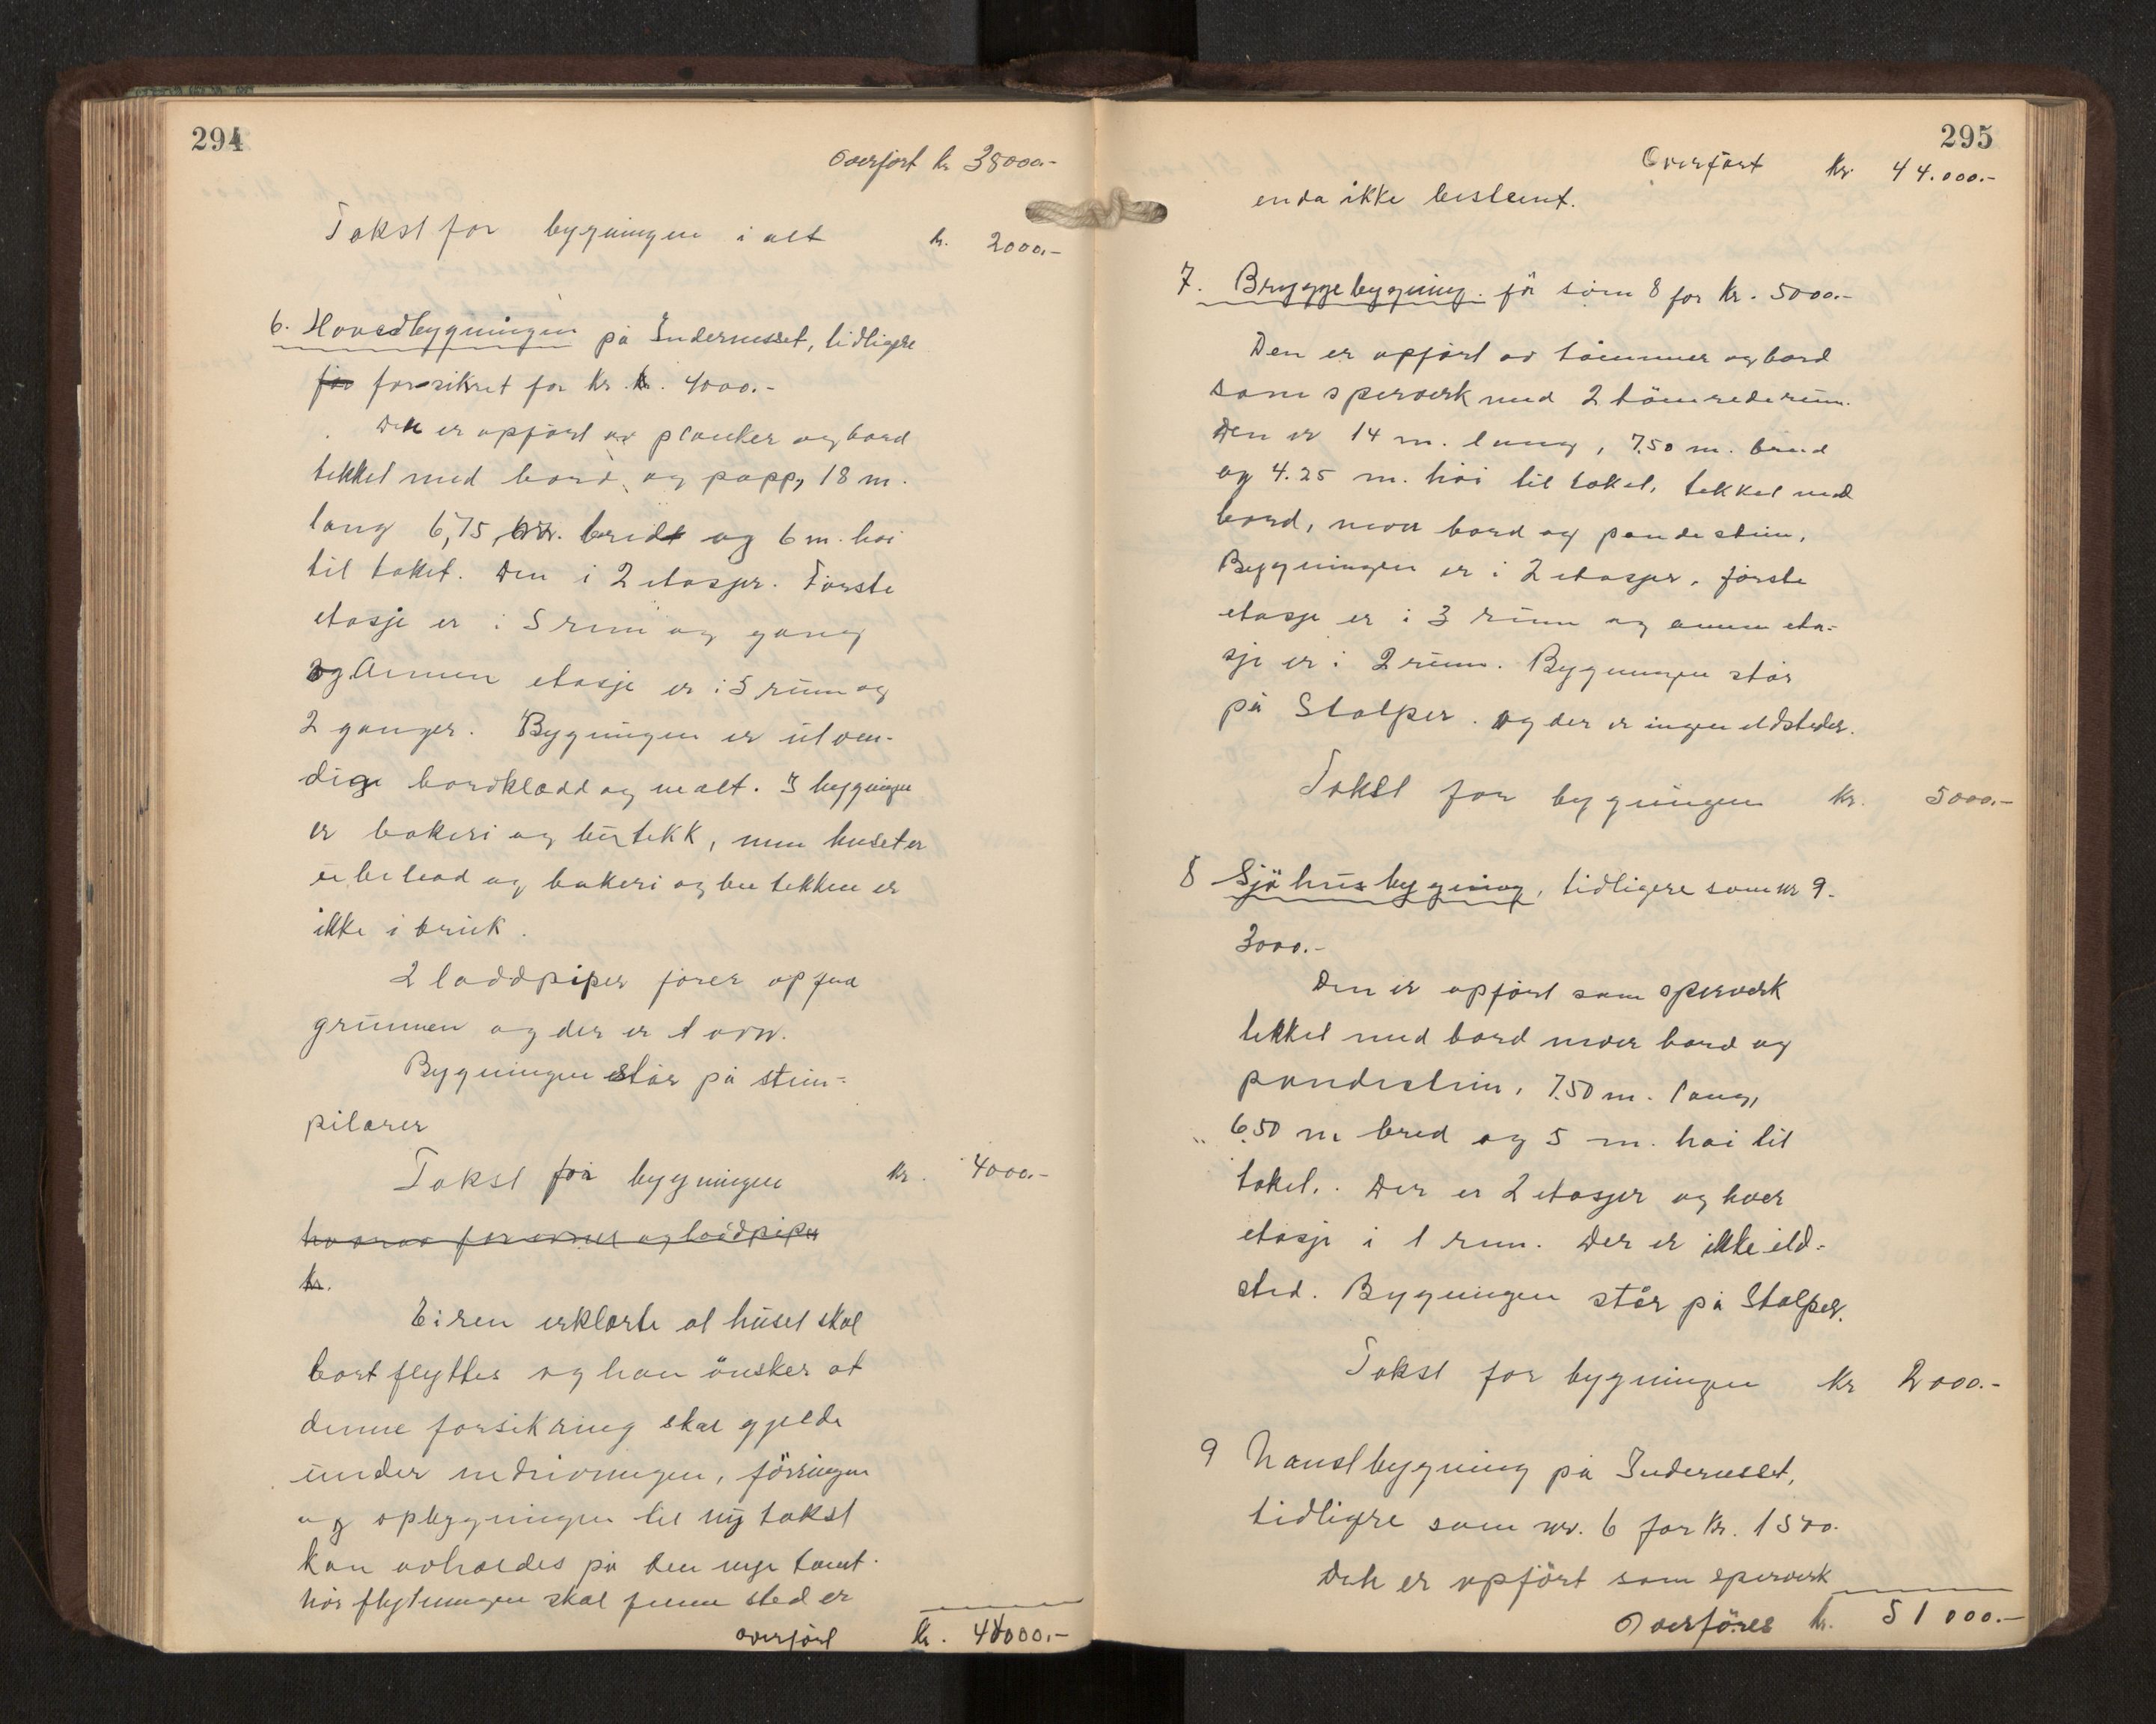 294
Overført kr 38000.-
Takst for bygningen i alt kr. 2000.-
6. Hovedbygningen på Indernesset, tidligere
for forsikret for kr. k. 4000.-
Den er opført av planker og bord
tekket med bord og papp, 18 m.
lang 6,75 m. bred og 6 m. høi
til taket. Den i 2 etasjer. Første
etasje er i 5 rum og gang
og Annen etasje er i 5 rum og
2 ganger. Bygningen er utven-
dige bordklædd og malt. I bygningen
er bakeri og butikk, men huset er
ubebod og bakeri og butikken er
ikke i bruk.
2 loddpiper fører op fra
grunnen og der er 1 ovn.
Bygningen står på stein-
pilarer
Takst for bygningen kr. 4000.-
hvorav for ovner og loddpiper
kr.
Eiren erklærte at huset skal
bortflyttes og han ønsker at
denne forsikring skal gjelde
under nedrivningen, føringen
og opbygningen til ny takst
kan avholdes på den nye tomt.
når flytningen skal finne sted er
overført kr. 44000.-
295
Overført kr. 44.000.-
enda ikke bestemt.
7. Bryggebygning. før som 8 for kr. 5000.-
Den er opført av tømmer og bord
som sperverk med 2 tømrede rum.
Den er 14 m. lang, 7.50 m. bred
og 4.25 m. høi til taket, tekket med
bord, never bord og pandestein,
Bygningen er i 2 etasjer, første
etasje er i 3 rum og annen eta-
sje er i 2 rum. Bygningen står
på Stolper. og der er ingen ildsteder.
Takst for bygningen kr. 5000.-
8 Sjöhusbygning, tidligere som nr 9.
3000.-
Den er opført som sperverk
tekket med bord never bord og
pandestein, 7.50 m. lang,
6.50 m bred og 5 m. høi til
taket. Der er 2 etasjer og hver
etasje i 1 rum. Der er ikke ild-
sted. Bygningen står på Stolper.
Takst for bygningen kr 2000.-
9 Naustbygning på Indernesset,
tidligere som nr. 6 for kr. 1500.
Den er opført som sperverk
Overføres kr. 51000.-